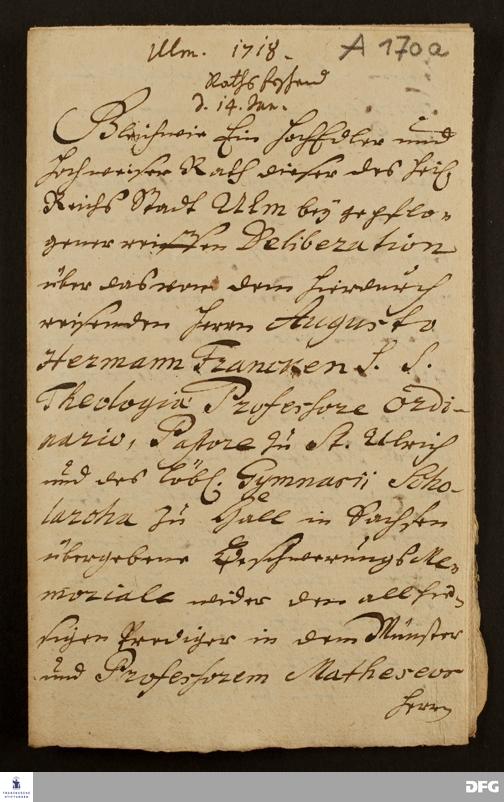 Ulm. 1718.
A 170a
Raths
d. 14. Jan.
Gleichwie Ein HochEdler und
Hochweiser Rath dieser des Heil.
Reichs Stadt Ulm bey gepflo-
gener reiffen Deliberation
über das von dem hierdurch
reisenden Herrn Augusto
Hermann Francken S. S.
Theologiæ Professore Ordi-
nario, Pastore zu St. Ulrich
und des löbl. Gymnasii Scho-
larcha zu Halle in Sachsen
übergebene Beschwerungs Me-
moriale wider den allhie-
sigen Prediger in dem Münster
und Professorem Matheseos
Herrn
FRANCKESCHE STIFTUNGEN
DFG